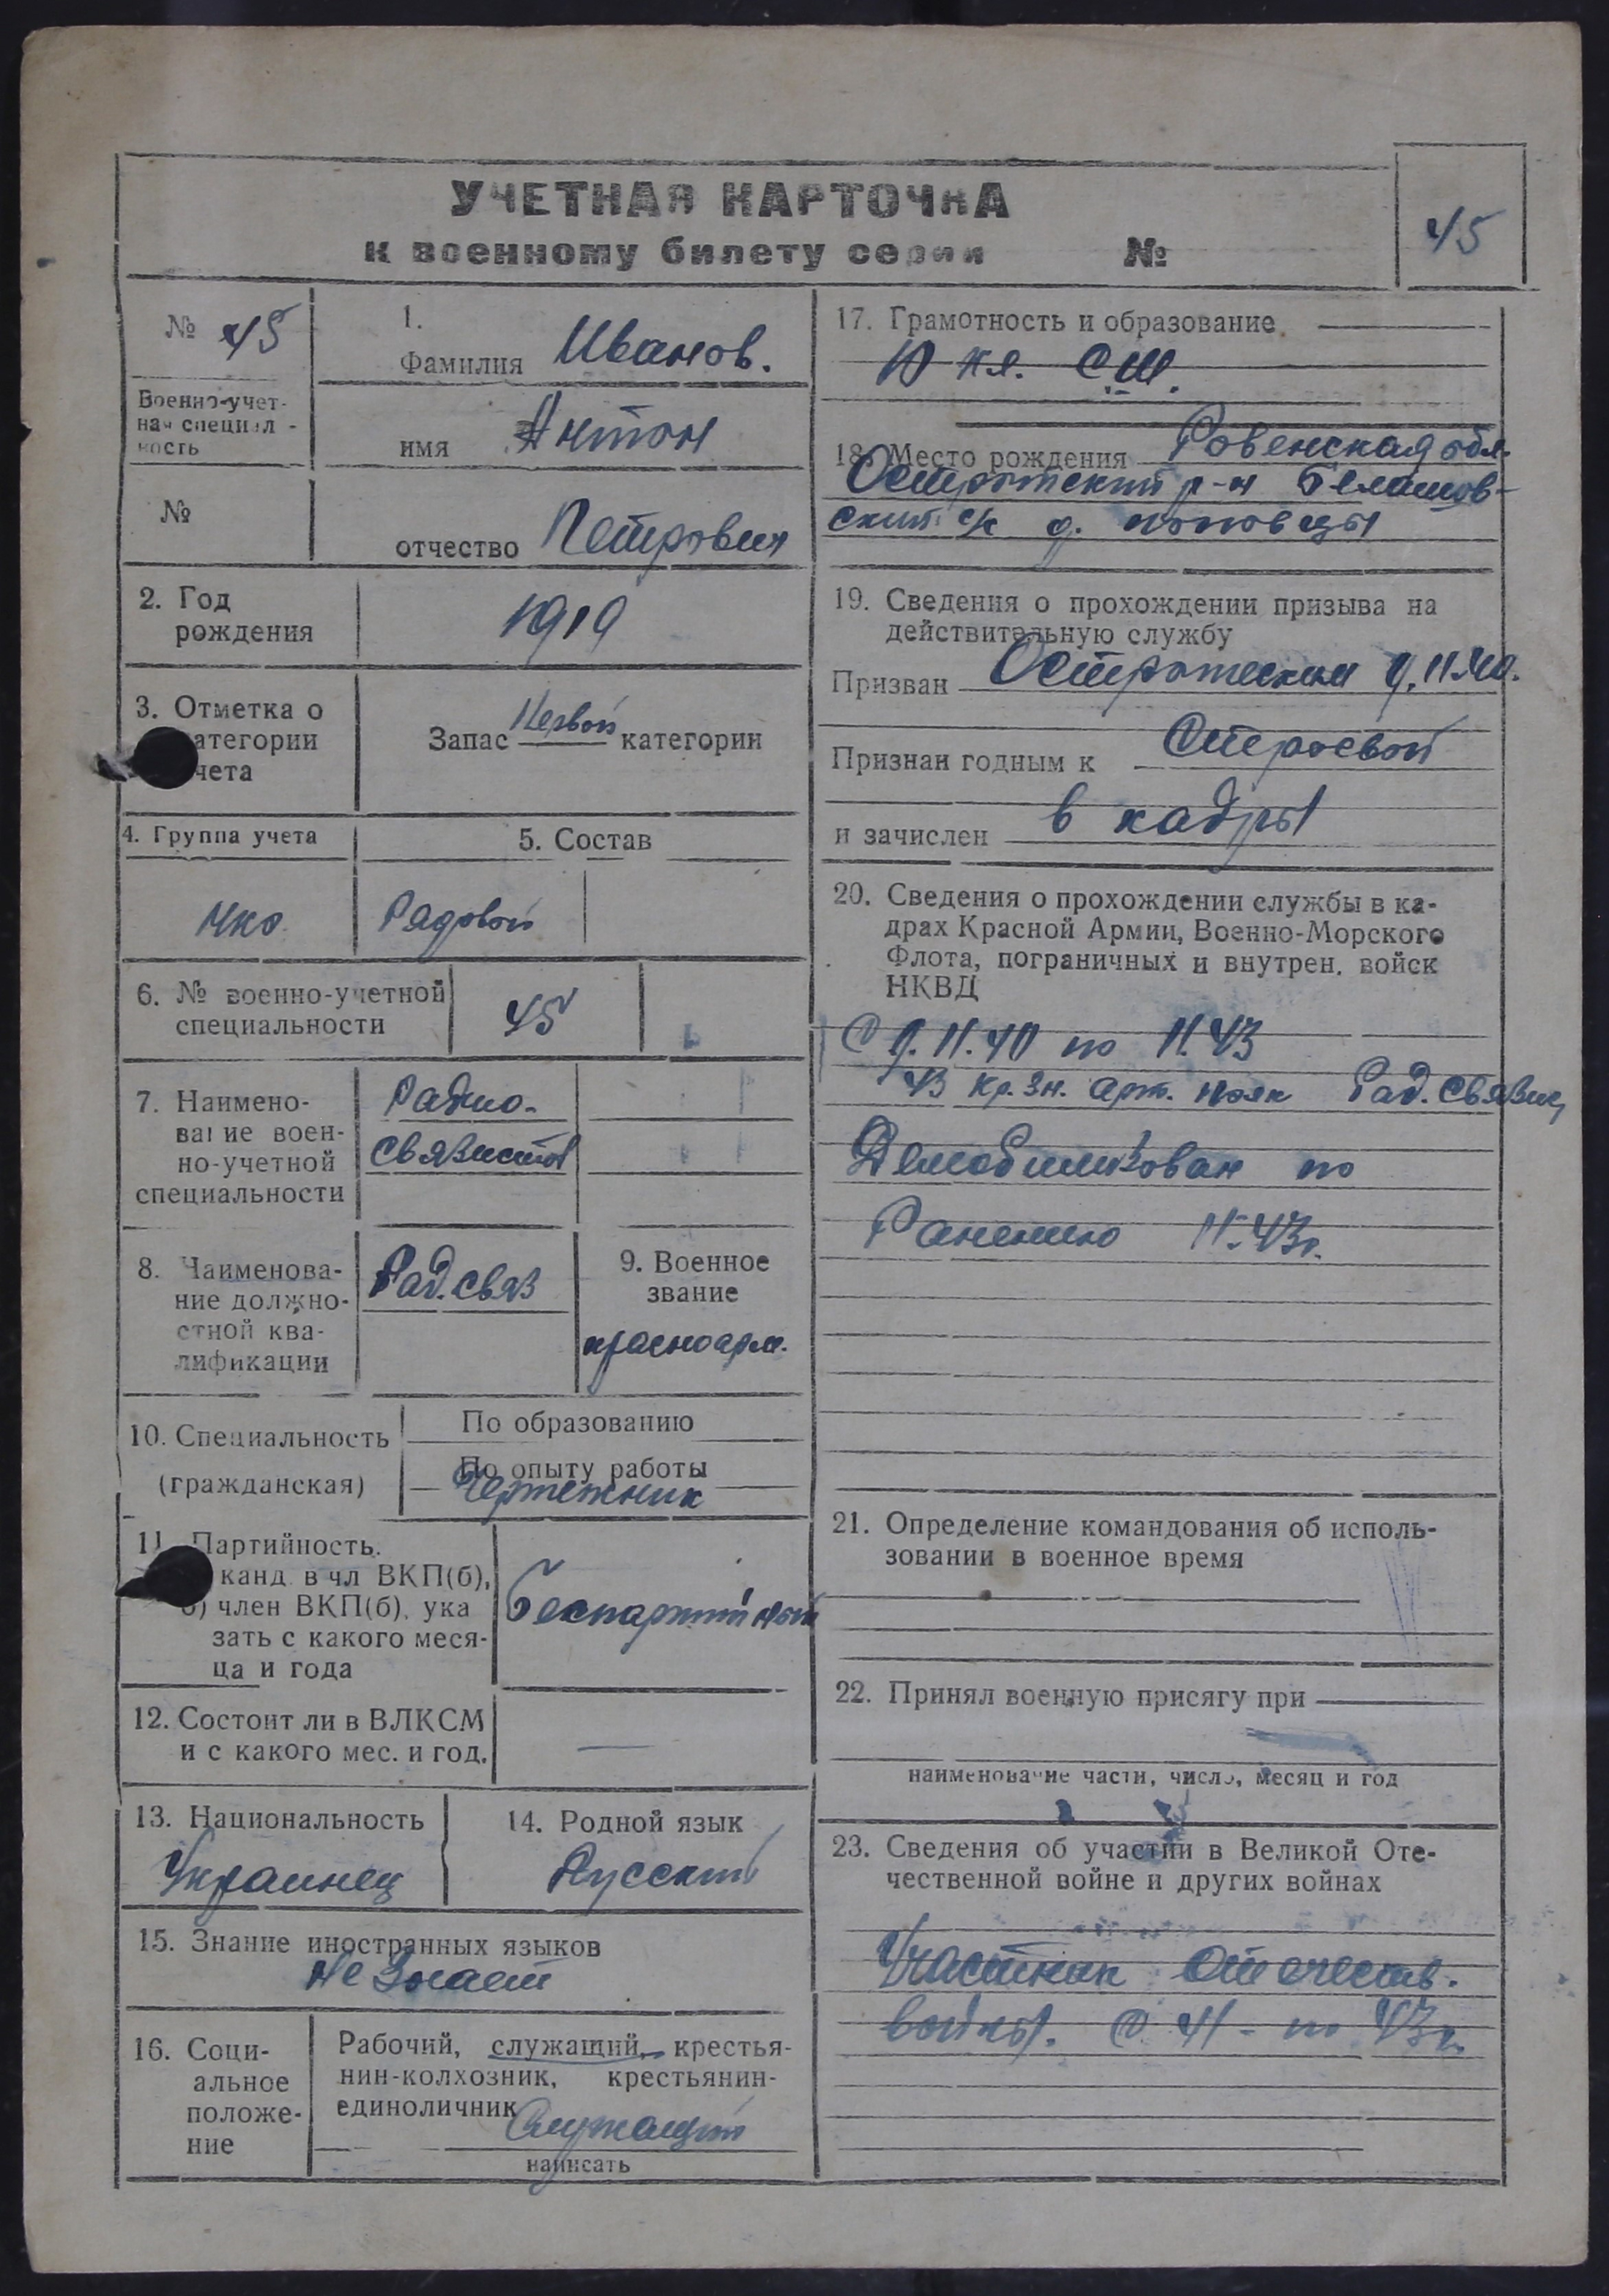 УЧЕТНАЯ КАРТОЧКА
к военному билету серии №
45
№ 45
Военно-учет-
ная специал-
ность
№
1.
Фамилия Иванов.
имя Антон
отчество Петрович
2. Год
рождения
1919
3. Отметка о
атегории
чета
Запас Первой категории
4. Группа учета
5. Состав
Рядовой
6. № военно-учетной
специальности
45
7. Наимено-
вание воен-
но-учетной
специальности
Радио-
связистов
8. Наименова-
ние должно-
стной ква-
лификации
Рад. связ
9. Военное
звание
красноарм.
10. Специальность
(гражданская)
По образованию
По опыту работы
Чертежник
11. Партийность.
канд. в чл ВКП(б),
б) член ВКП(б), ука
зать с какого меся-
ца и года
Беспартийный
12. Состоит ли в ВЛКСМ
и с какого мес. и год.
—
13. Национальность
Украинец
14. Родной язык
Русский
15. Знание иностранных языков
Не знает
16. Соци-
альное
положе-
ние
Рабочий, служащий, крестья-
нин-колхозник, крестьянин-
единоличник
Служащий
написать
17. Грамотность и образование
10 кл. СШ.
18. Место рождения Ровенская обл.
Острожский р-н
ский с/с д.
19. Сведения о прохождении призыва на
действительную службу
Призван
Признан годным к Строевой
и зачислен в кадры
20. Сведения о прохождении службы в ка-
драх Красной Армии, Военно-Морского
Флота, пограничных и внутрен. войск
НКВД
по 11.43
43 кр. зн. арт. полк Рад. связис,
Демобилизован по
Ранению 11.43г.
21. Определение командования об исполь-
зовании в военное время
22. Принял военную присягу при
наименование части, число, месяц и год
23. Сведения об участии в Великой Оте-
чественной войне и других войнах
Участник Отечеств.
войны. С 41 - по 43г.